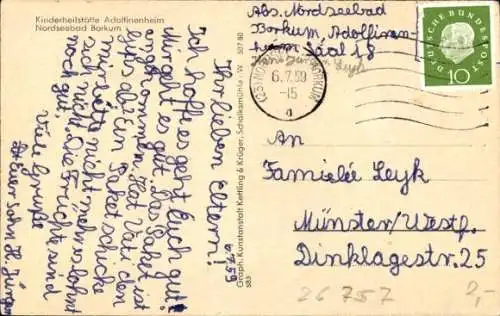 Kinderheilstätte Adolfinenheim
Nordseebad Borkum
Ihr lieben Eltern!
6.7.59
Ich hoffe es geht Euch gut.
Mir geht es gut. Das Paket ist
angekommen. Hat Vati den
ein Paket schicke
mir bitte nicht mehr es lohnt
sich nicht. Die Früchte sind
noch gut.
Viele Grüße
Euer Sohn H. Jürgen
Graph. Kunstanstalt Kettling & Krüger, Schalksmühle - W. 507 80
583
Abs. Nordseebad
Borkum Adolfinen-
heim Saal 18
Hans Jürgen Leyk
(23) NORDSEEBAD BORKUM
6.7.59
-15
a
DEUTSCHE BUNDESPOST
10
An
Familie Leyk
Münster/Westf.
Dinklagestr. 25
26 757
2,-